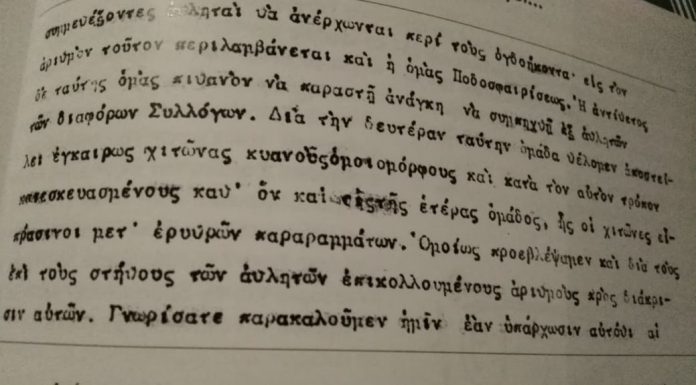 συμμευέξοντες ἀθληταὶ νὰ ἀνέρχωνται περὶ τοὺς ὀγδοήκοντα· εἰς τὸν
ἀριθμὸν τοῦτον περιλαμβάνεται καὶ ἡ ὁμὰς Ποδοσφαιρίσεως. Ἡ ἀντίθετος
δὲ ταύτης ὁμὰς πιθανὸν νὰ παραστῇ ἀνάγκη νὰ συμπηχθῇ ἐξ ἀθλητῶν
τῶν διαφόρων Συλλόγων. Διὰ τὴν δευτέραν ταύτην ὁμάδα θέλομεν ἀποστεί-
λει ἐγκαίρως χιτῶνας κυανοῦς ὁμοιομόρφους καὶ κατὰ τὸν αὐτὸν τρόπον
κατεσκευασμένους καθ' ὃν καὶ τῆς ἑτέρας ὁμάδος, ἧς οἱ χιτῶνες εἶ-
πράσινοι μετ' ἐρυθρῶν παραραμμάτων. Ὁμοίως προεβλέψαμεν καὶ διὰ τοὺς
ἐπὶ τοὺς στήθους τῶν ἀθλητῶν ἐπικολλουμένους ἀριθμοὺς πρὸς διάκρι-
σιν αὐτῶν. Γνωρίσατε παρακαλοῦμεν ἡμῖν ἐὰν ὑπάρχωσιν αὐτόθι αἱ